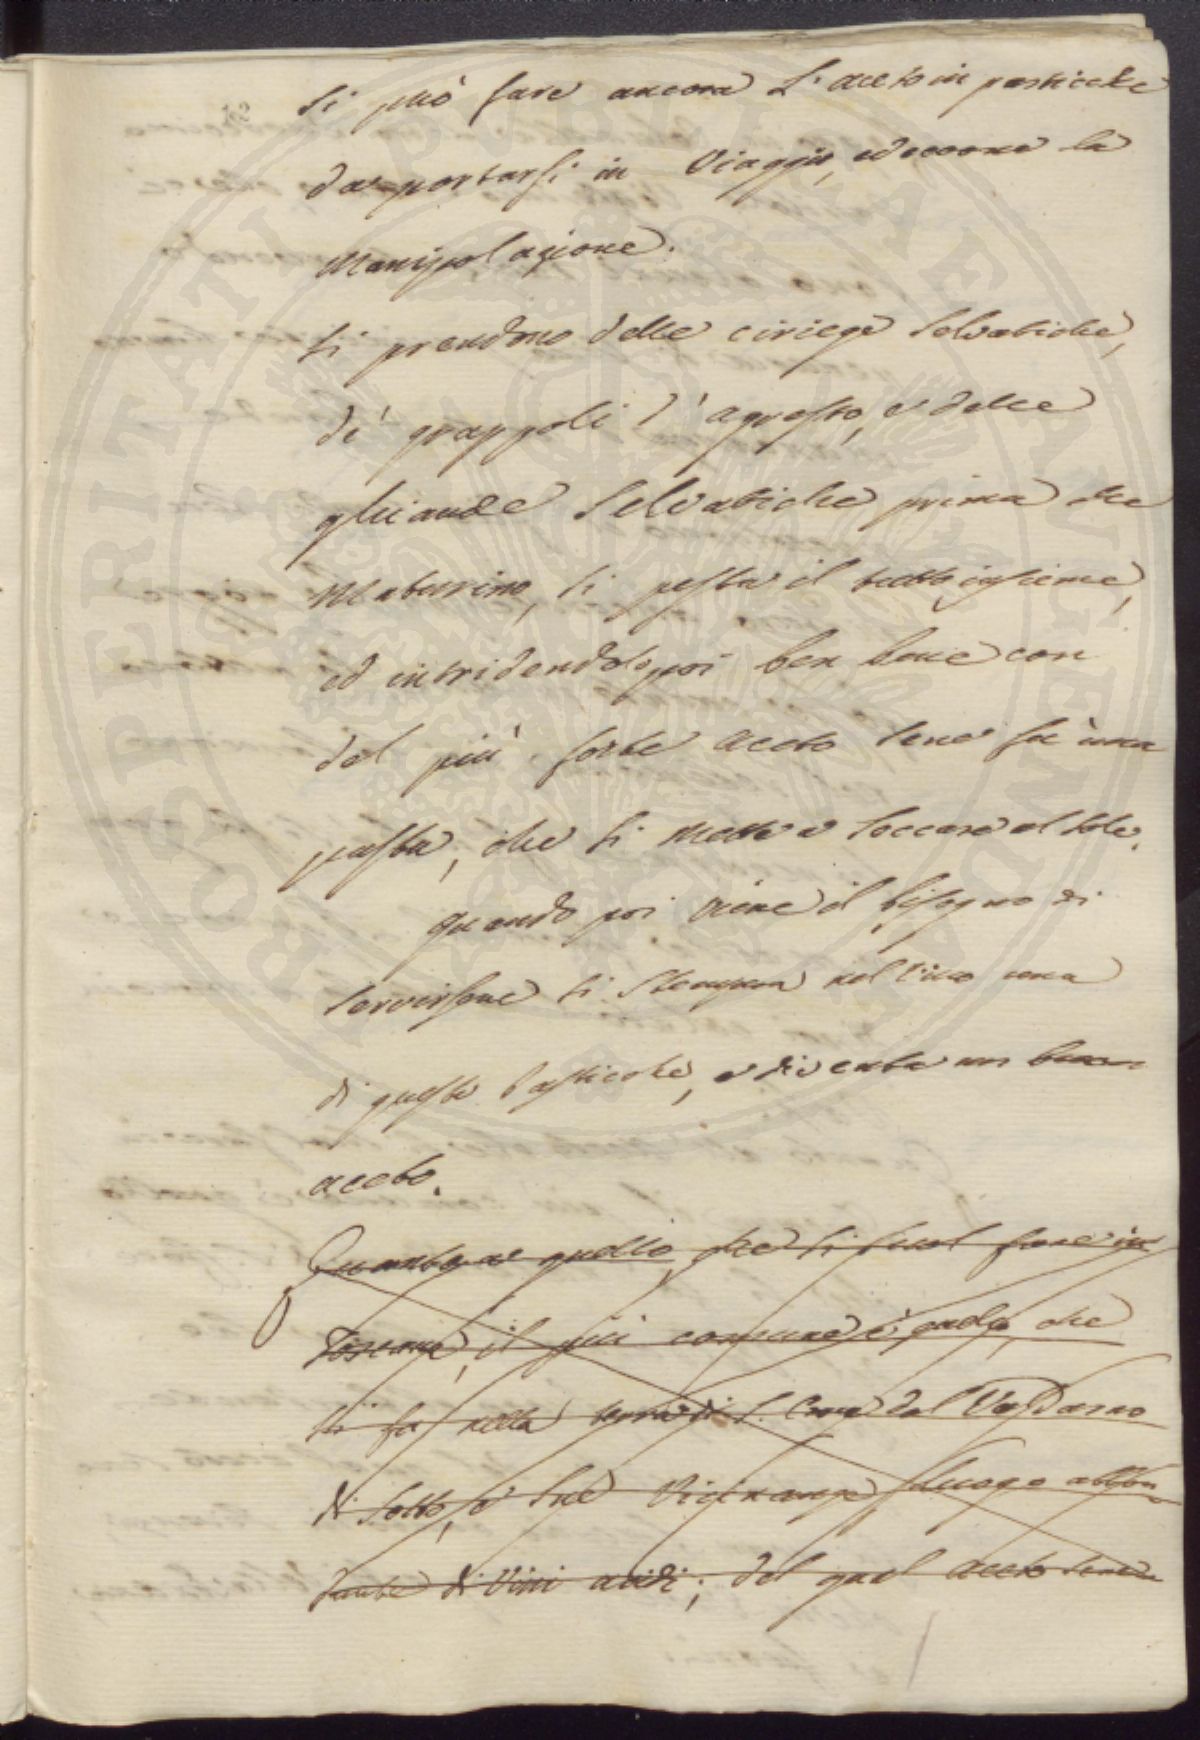 Si può fare ancora L'aceto in pasticche
da portarsi in Viaggio, ed eccone la
Manipolazione.
Si prendono delle ciriege Selvatiche,
de' grappoli d'agresto, e delle
ghiande Selvatiche prima che
Maturino, si pesta il tutto insieme,
ed intridendolo poi ben bene con
del più forte aceto sene fà una
pasta, che si mette a seccare al sole.
quando poi viene il bisogno di
servirsene si stempra nel Vino una
di queste Pasticche, e diventa un buon
aceto.
Quanto a quello, che si suol fare in
Toscana, il più comune è quello, che
si fa nella terra di S. Croce del Valdarno
di Sotto, e sue Vicinanze, luogo abbon
dante di Vini acidi; del qual aceto sene
PROSPERITATI PUBLICAE AUGENDAE